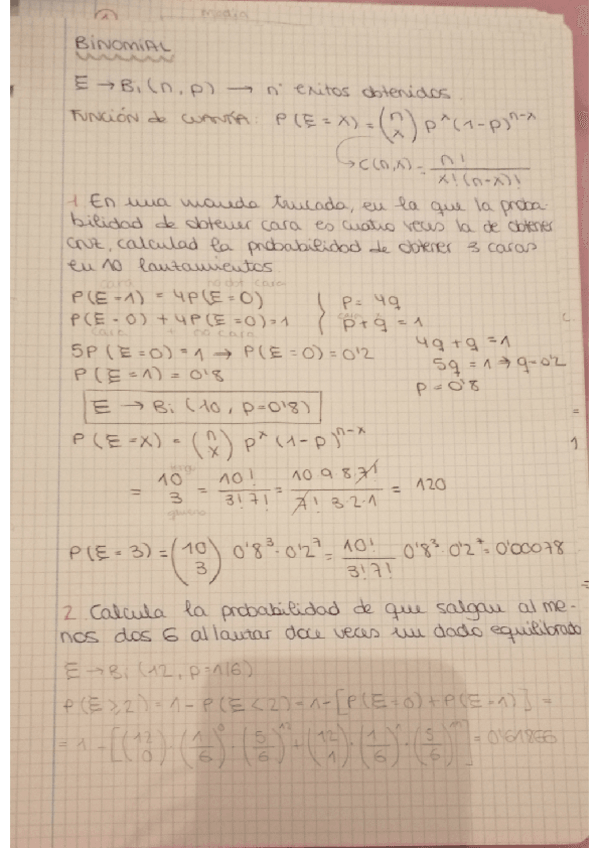 media
BINOMIAL
E → Bi (n, p) → nº exitos obtenidos.
FUNCIÓN de CUANTÍA: P(E = x) = (n x) p^x (1-p)^n-x
C(n,x) = n! / x!(n-x)!
1. En una moneda trucada, en la que la proba-
bilidad de obtener cara es cuatro veces la de obtener
cruz, calculad la probabilidad de obtener 3 caras
en 10 lanzamientos.
P(E = 1) = 4P(E = 0) p = 4q
P(E = 0) + 4P(E = 0) = 1 p + q = 1
cara + no cara 4q + q = 1
5P(E = 0) = 1 → P(E = 0) = 0'2 5q = 1 → q = 0'2
P(E = 1) = 0'8 p = 0'8
E → Bi (10, p = 0'8)
P(E = x) = (n x) p^x (1-p)^n-x
= 10 3 = 10! / 3!7! = 10 9 8 7! / 7! 3·2·1 = 120
P(E = 3) = (10 3) 0'8^3 · 0'2^7 = 10! / 3!7! 0'8^3 · 0'2^7 = 0'00078
2. Calcula la probabilidad de que salgan al me-
nos dos 6 al lanzar doce veces un dado equilibrado
E → Bi (12, p = 1/6)
P(E ≥ 2) = 1 - P(E < 2) = 1 - [P(E = 0) + P(E = 1)] =
= 1 - [(12 0) · (1/6)^0 · (5/6)^12 + (12 1) · (1/6)^1 · (5/6)^11] = 0'61866